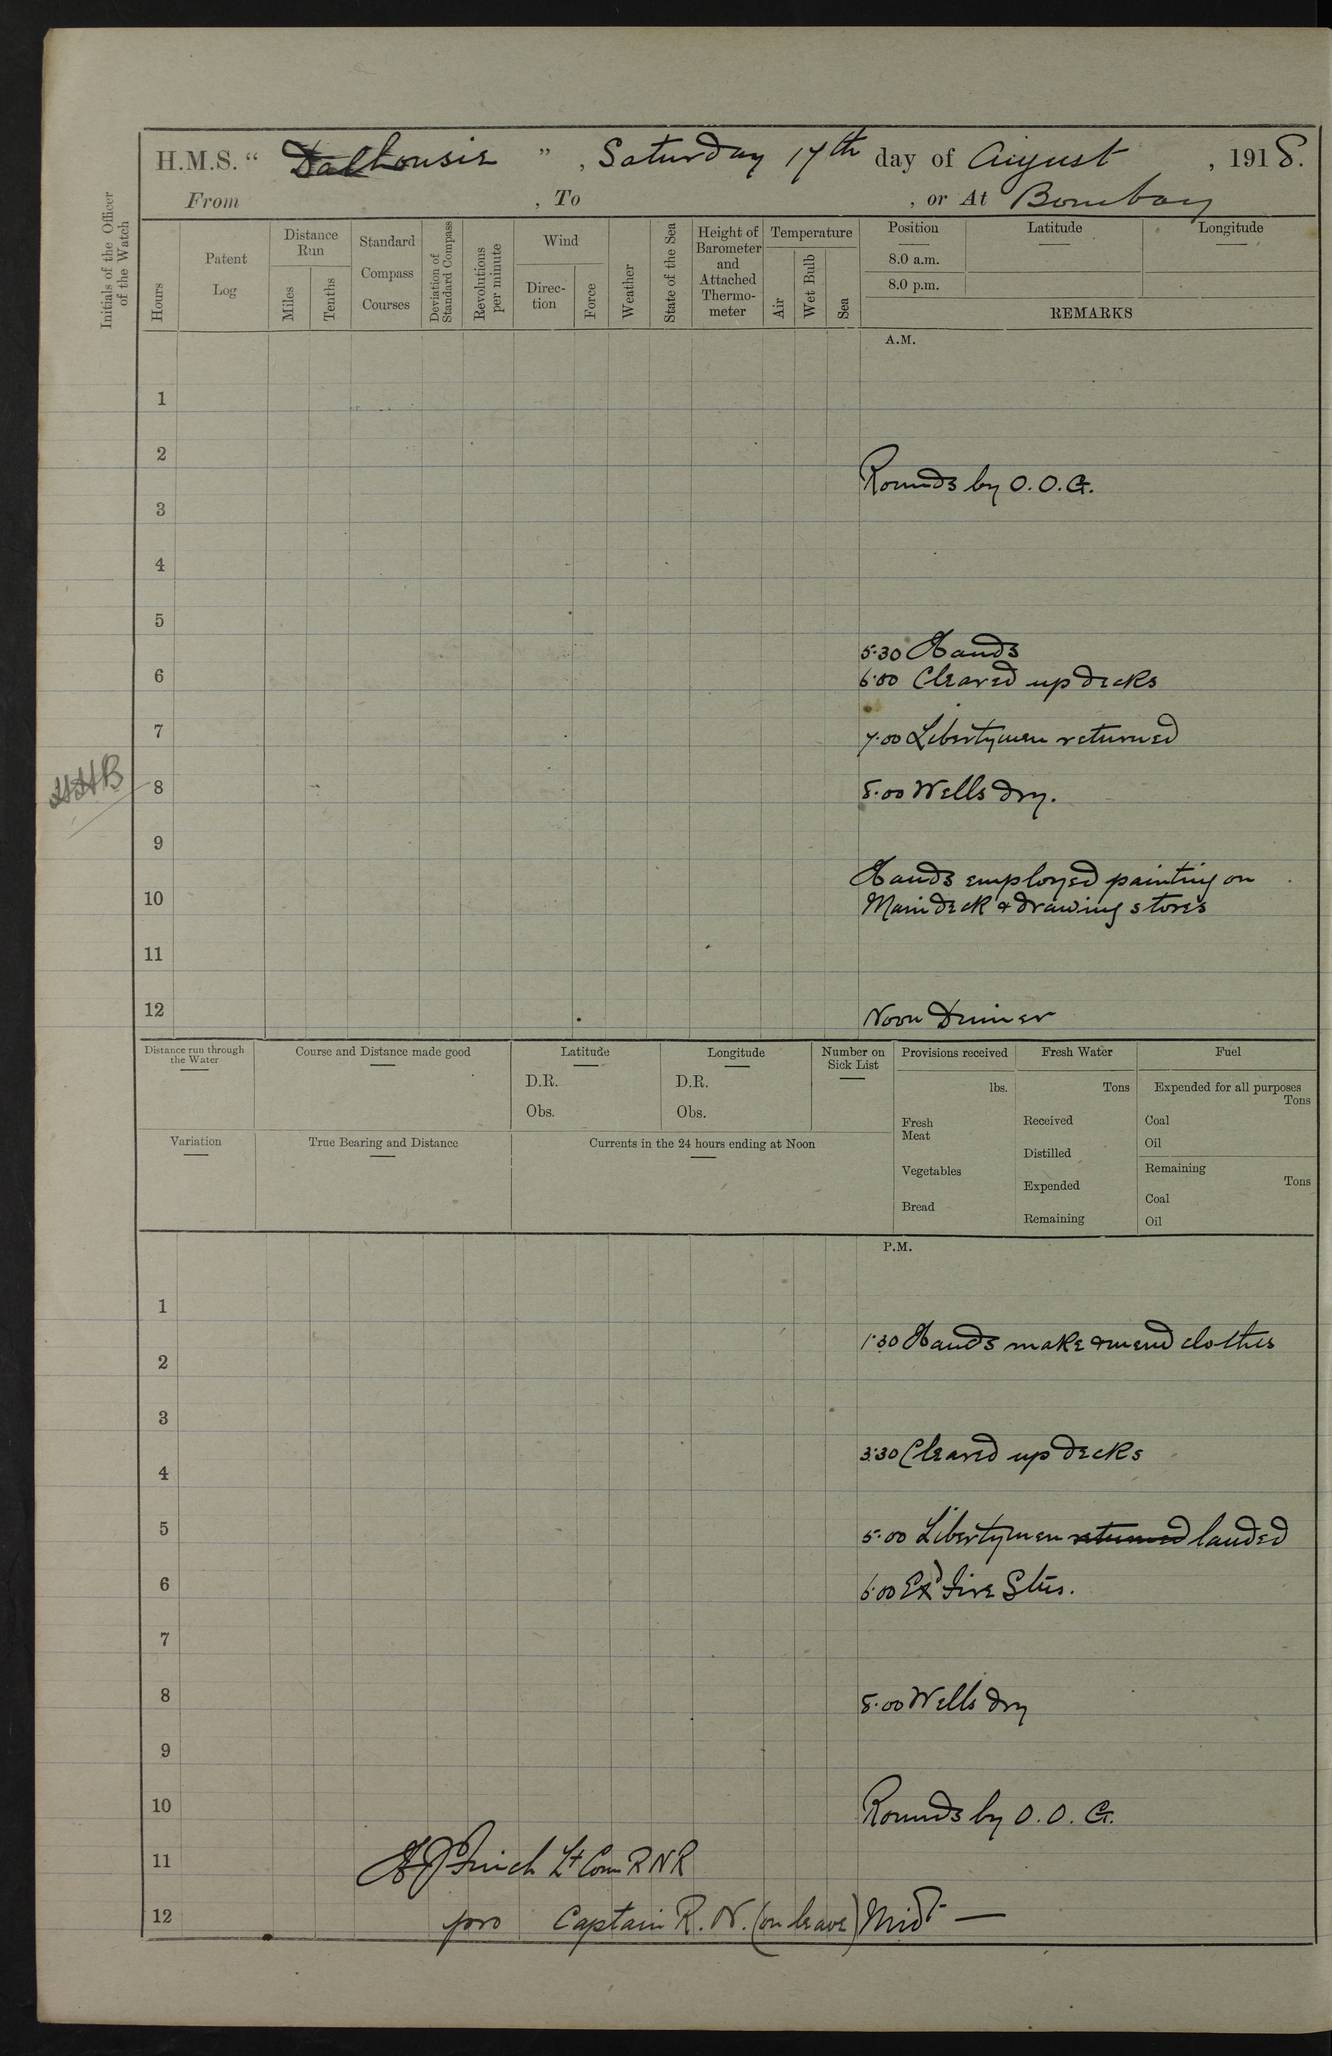 H.M.S. “ Dalhousie ” , Saturday 17th day of August , 1918.
From , To , or At Bombay
Initials of the Officer of the Watch
Hours
Patent Log
Distance Run
Miles
Tenths
Standard Compass Courses
Deviation of Standard Compass
Revolutions per minute
Wind
Direc-tion
Force
Weather
State of the Sea
Height of Barometer and Attached Thermo-meter
Temperature
Air
Wet Bulb
Sea
Position
Latitude
Longitude
8.0 a.m.
8.0 p.m.
REMARKS
A.M.
1
2
Rounds by O.O.G.
3
4
5
5.30 Hands
6
6.00 Cleared up decks
7
7.00 Libertymen returned
HHB
8
8.00 Wells dry.
9
Hands employed painting on
10
Main deck & drawing stores
11
12
Noon Dinner
Distance run through the Water
Course and Distance made good
Latitude
D.R.
Obs.
Longitude
D.R.
Obs.
Number on Sick List
Provisions received
lbs.
Fresh Meat
Vegetables
Bread
Fresh Water
Tons
Received
Distilled
Expended
Remaining
Fuel
Expended for all purposes
Tons
Coal
Oil
Remaining
Tons
Coal
Oil
Variation
True Bearing and Distance
Currents in the 24 hours ending at Noon
P.M.
1
1.30 Hands make & mend clothes
2
3
3.30 Cleared up decks
4
5
5.00 Libertymen returned landed
6
6.00 Exd Fire Stns.
7
8
8.00 Wells dry
9
10
Rounds by O.O.G.
11
Finch Lt Com RNR
12
pro Captain R.N. (on leave) Midt —